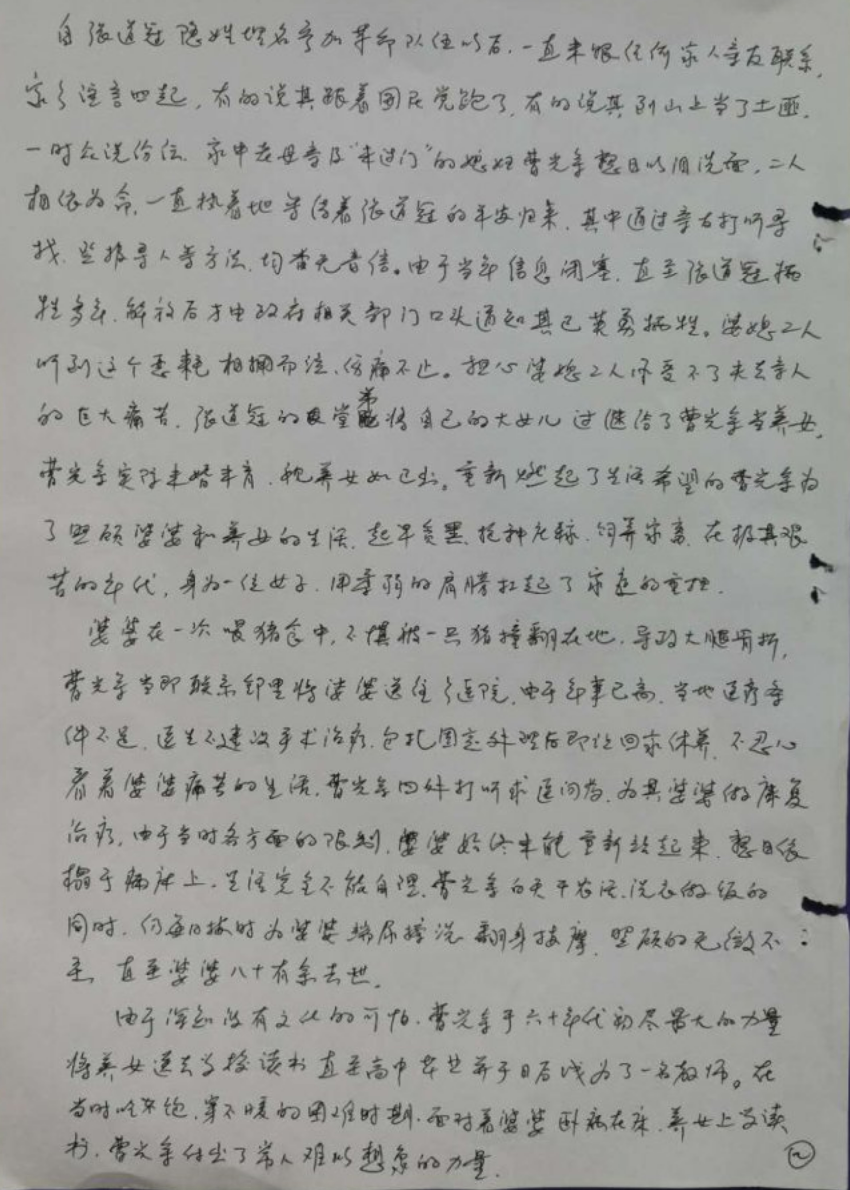 自张道冠隐姓埋名参加革命队伍以后，一直未跟任何家人亲友联系，
家乡谣言四起，有的说其跟着国民党跑了，有的说其到山上当了土匪，
一时众说纷纭。家中老母亲及“未过门”的媳妇曹光英整日以泪洗面，二人
相依为命，一直执着地等待着张道冠的平安归来，其中通过亲友打听寻
找、登报寻人等方法，均杳无音信。由于当年信息闭塞，直至张道冠牺
牲多年，解放后才由政府相关部门口头通知其已英勇牺牲。婆媳二人
听到这个恶耗相拥而泣，伤痛不止。担心婆媳二人承受不了失去亲人
的巨大痛苦，张道冠的堂弟将自己的大女儿过继给了曹光英当养女，
曹光英实际未婚未育，视养女如己出。重新燃起了生活希望的曹光英为
了照顾婆婆和养女的生活，起早贪黑，抢种庄稼，饲养家畜，在极其艰
苦的年代，身为一位女子，用柔弱的肩膀扛起了家庭的重担。
婆婆在一次喂猪食中，不慎被一只猪撞翻在地，导致大腿骨折，
曹光英当即联系邻里将婆婆送往乡医院，由于年事已高，当地医疗条
件不足，医生不建议手术治疗，包扎固定处理后即让回家休养，不忍心
看着婆婆痛苦的生活，曹光英四处打听求医问药，为其婆婆做康复
治疗，由于当时各方面的限制，婆婆始终未能重新站起来，整日卧
榻于病床上，生活完全不能自理，曹光英白天干农活、洗衣做饭的
同时，仍每日按时为婆婆端尿擦洗、翻身按摩，照顾的无微不
至，直至婆婆八十有余去世。
由于深知没有文化的可怕，曹光英于六十年代初尽最大的力量
将养女送去学校读书直至高中毕业并于日后成为了一名教师。在
当时吃不饱、穿不暖的困难时期，面对着婆婆卧病在床，养女上学读
书，曹光英付出了常人难以想象的力量。